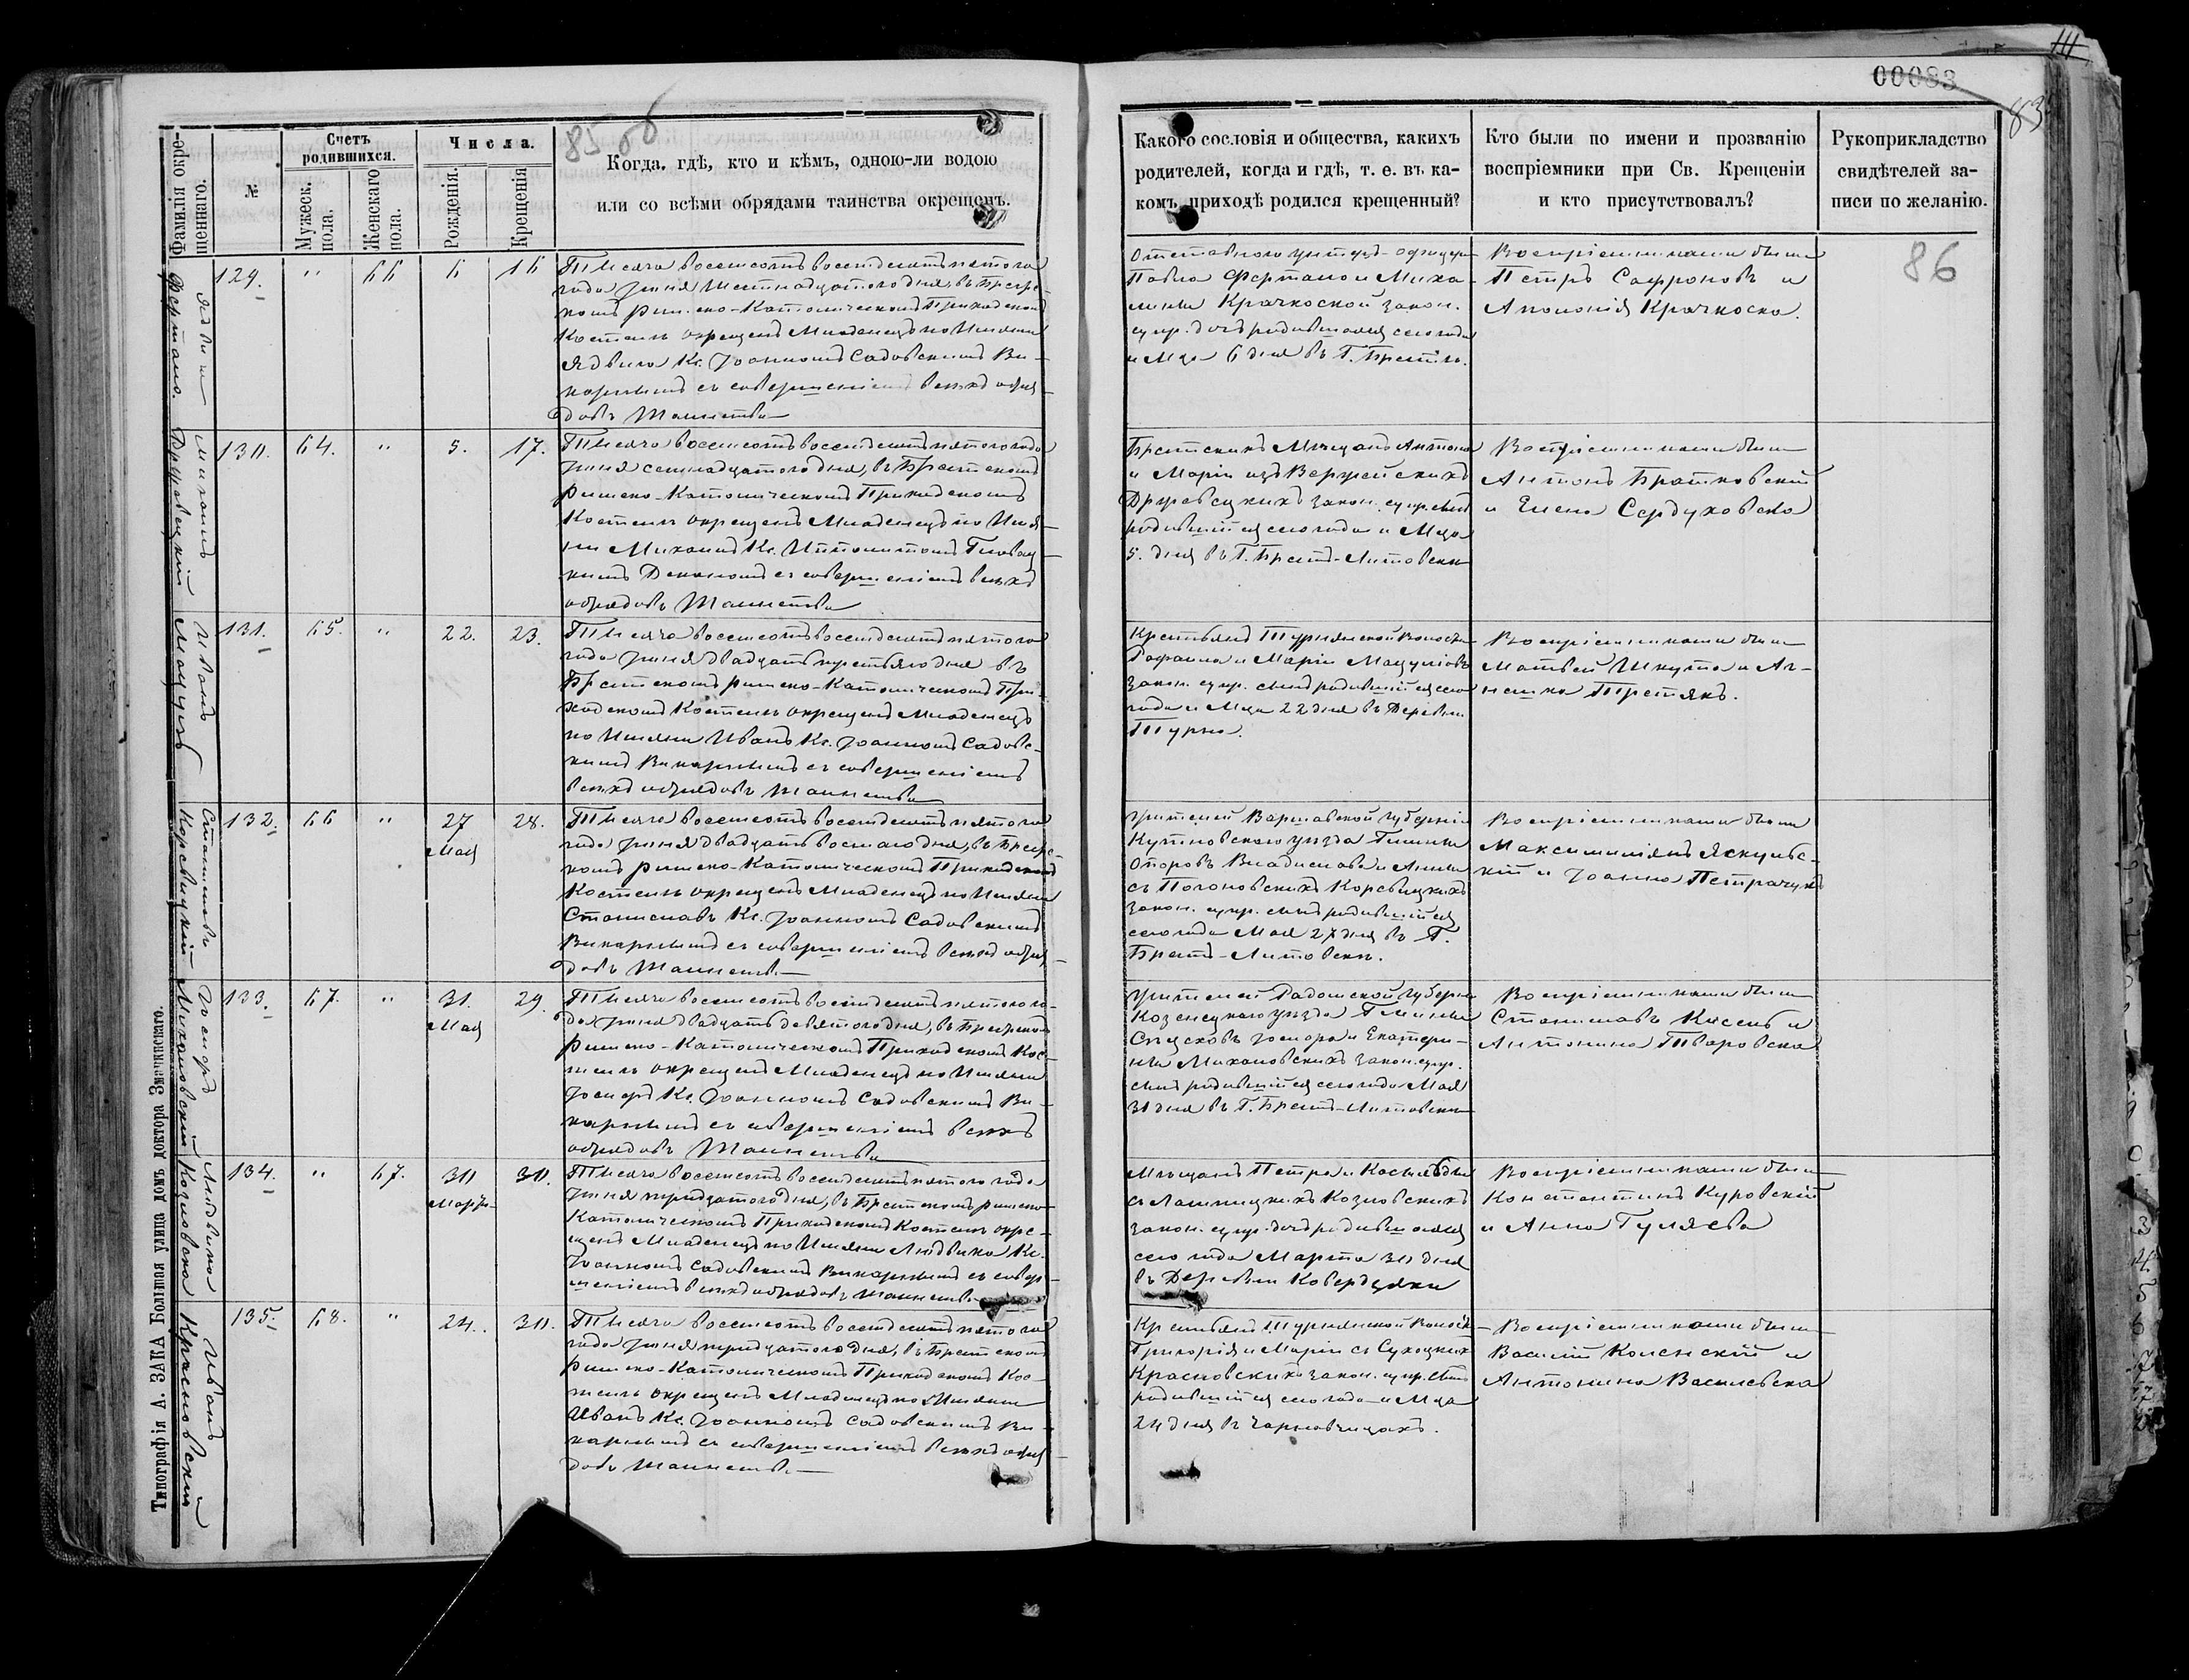 111
00083
83
85 об
86
Фамилія окре-
щеннаго.
№
Счетъ
родившихся.
Мужеск.
пола.
Женскаго
пола.
Числа.
Рожденія.
Крещенія
Когда, гдѣ, кто и кѣмъ, одною-ли водою
или со всѣми обрядами таинства окрещенъ.
Какого сословія и общества, какихъ
родителей, когда и гдѣ, т. е. въ ка-
комъ приходѣ родился крещенный?
Кто были по имени и прозванію
воспріемники при Св. Крещеніи
и кто присутствовалъ?
Рукоприкладство
свидѣтелей за-
писи по желанію.
129.
"
66
6
16
Тысяча восемсотъ восемдесятъ пятого
года Іюня шестнадцатого дня, въ Брест-
комъ римско-Католическомъ Приходскомъ
Костелѣ окрещенъ Младенецъ по Имяни
Ядвига Кс. Іоанномъ Садовскимъ Ви-
карнымъ съ совершеніемъ всѣхъ обря-
довъ Таинства
Павла Фертаго и Миха-
лины Крачкоской закон.
супр. дочь родившаяся сего года
и Мца 6 дня въ Г. Брестѣ.
Воспріемниками были
Петръ Сафроновъ и
Аполонія Крачкоска.
130.
64.
"
5.
17.
Тысяча восемсотъ восемдесятъ пятого года
Іюня семнадцатого дня, въ Брестскомъ
Римско-Католическомъ Приходскомъ
Костелѣ окрещенъ Младенецъ по Имя-
ни Михаилъ Кс. Ипполитомъ Гловац-
кимъ Деканомъ съ совершеніемъ всѣхъ
обрядовъ Таинства
Брестскихъ Мѣщанъ Антона
и Маріи изъ
закон. супр. сынъ
родившійся сего года и Мца
5. дня въ Г. Брестъ-Литовскѣ
Воспріемниками были
Антонъ Братковскій
и Елена Сердуховска
131.
65.
"
22.
23.
Тысяча восемсотъ восемдесятъ пятого
года Іюня двадцать третьяго дня въ
Брестскомъ римско-Католическомъ При-
ходскомъ Костелѣ окрещенъ Младенецъ
по Имяни Иванъ Кс. Іоанномъ Садовс-
кимъ Викарнымъ съ совершеніемъ
всѣхъ обрядовъ Таинства
Крестьянъ Турнянской Волости
Рафаила и Маріи Мацулевъ
закон. супр. сынъ родившійся сего
года и Мца 22 дня въ Деревни
Турна.
Воспріемниками были
Матвей Шкута и Аг-
нешка Третякъ.
132.
66
"
27
Мая
28.
Тысяча восемсотъ восемдесятъ пятого
года Іюня двадцать восмаго дня, въ Брест-
комъ Римско-Католическомъ Приходскомъ
Костелѣ окрещенъ Младенецъ по Имяни
Станиславъ Кс. Іоанномъ Садовскимъ
Викарнымъ съ совершеніемъ всѣхъ обря-
довъ Таинств.
Жителей Варшавской Губерніи
Кутновского уезда Гмины
Опоровъ Владислава и Анны
съ Погоновскихъ Корсвицкихъ
закон. супр. сынъ родившійся
сего года Мая 27 дня въ Г.
Брестъ-Литовскѣ.
Воспріемниками были
Максимиліянъ Яскульс-
кій и Іоанна Петрачукъ
133.
67.
"
31.
Мая
29.
Тысяча восемсотъ восемдесятъ пятого го-
да Іюня двадцать девятого дня, въ Брестскомъ
Римско-Католическомъ Приходскомъ Кос-
телѣ окрещенъ Младенецъ по Имяни
Кс. Іоанномъ Садовскимъ Ви-
карнымъ съ совершеніемъ всѣхъ
обрядовъ Таинства
Жителей Радомской Губерніи
Козеницкого уезда Гмины
и Екатери-
ны Михаловскихъ закон. супр.
сынъ родившійся сего года Мая
31 дня въ Г. Брестъ-Литовскѣ
Воспріемниками были
Станиславъ Кисель и
Антонина Тваровска
134.
"
67.
30
Марта
30.
Тысяча восемсотъ восемдесятъ пятого года
Іюня тридцатого дня, въ Брестскомъ римско-
Католическомъ Приходскомъ Костелѣ окре-
щенъ Младенецъ по Имяни Людвика Кс.
Іоанномъ Садовскимъ Викарнымъ съ совер-
шеніемъ всѣхъ обрядовъ Таинств.
Мѣщанъ Петра и
Козловскихъ
закон. супр. дочь родившаяся
сего года Марта 30 дня
въ Деревни Ковердзяки
Воспріемниками были
Константинъ Куровскій
и Анна Гуляева
135.
68.
"
24.
30.
Тысяча восемсотъ восемдесятъ пятого
года Іюня тридцатого дня, въ Брестскомъ
Римско-Католическомъ Приходскомъ Кос-
телѣ окрещенъ Младенецъ по Имяни
Иванъ Кс. Іоанномъ Садовскимъ Ви-
карнымъ съ совершеніемъ всѣхъ обря-
довъ Таинств.
Крестьянъ Турнянской Волости
Григорія и Маріи съ Сухоцкихъ
Красновскихъ закон. супр. сынъ
родившійся сего года и Мца
24 дня въ Чернавчицахъ.
Воспріемниками были
Василій Коленскій и
Антонина Василевска
Ядвига
Фертаго.
Михаилъ
Иванъ
Мацулевъ
Станиславъ
Корсвицкій
Михаловскій
Людвика
Козловска
Иванъ
Красновскій
Типографія А. ЗАКА Болшая улица домъ доктора Змачинскаго.